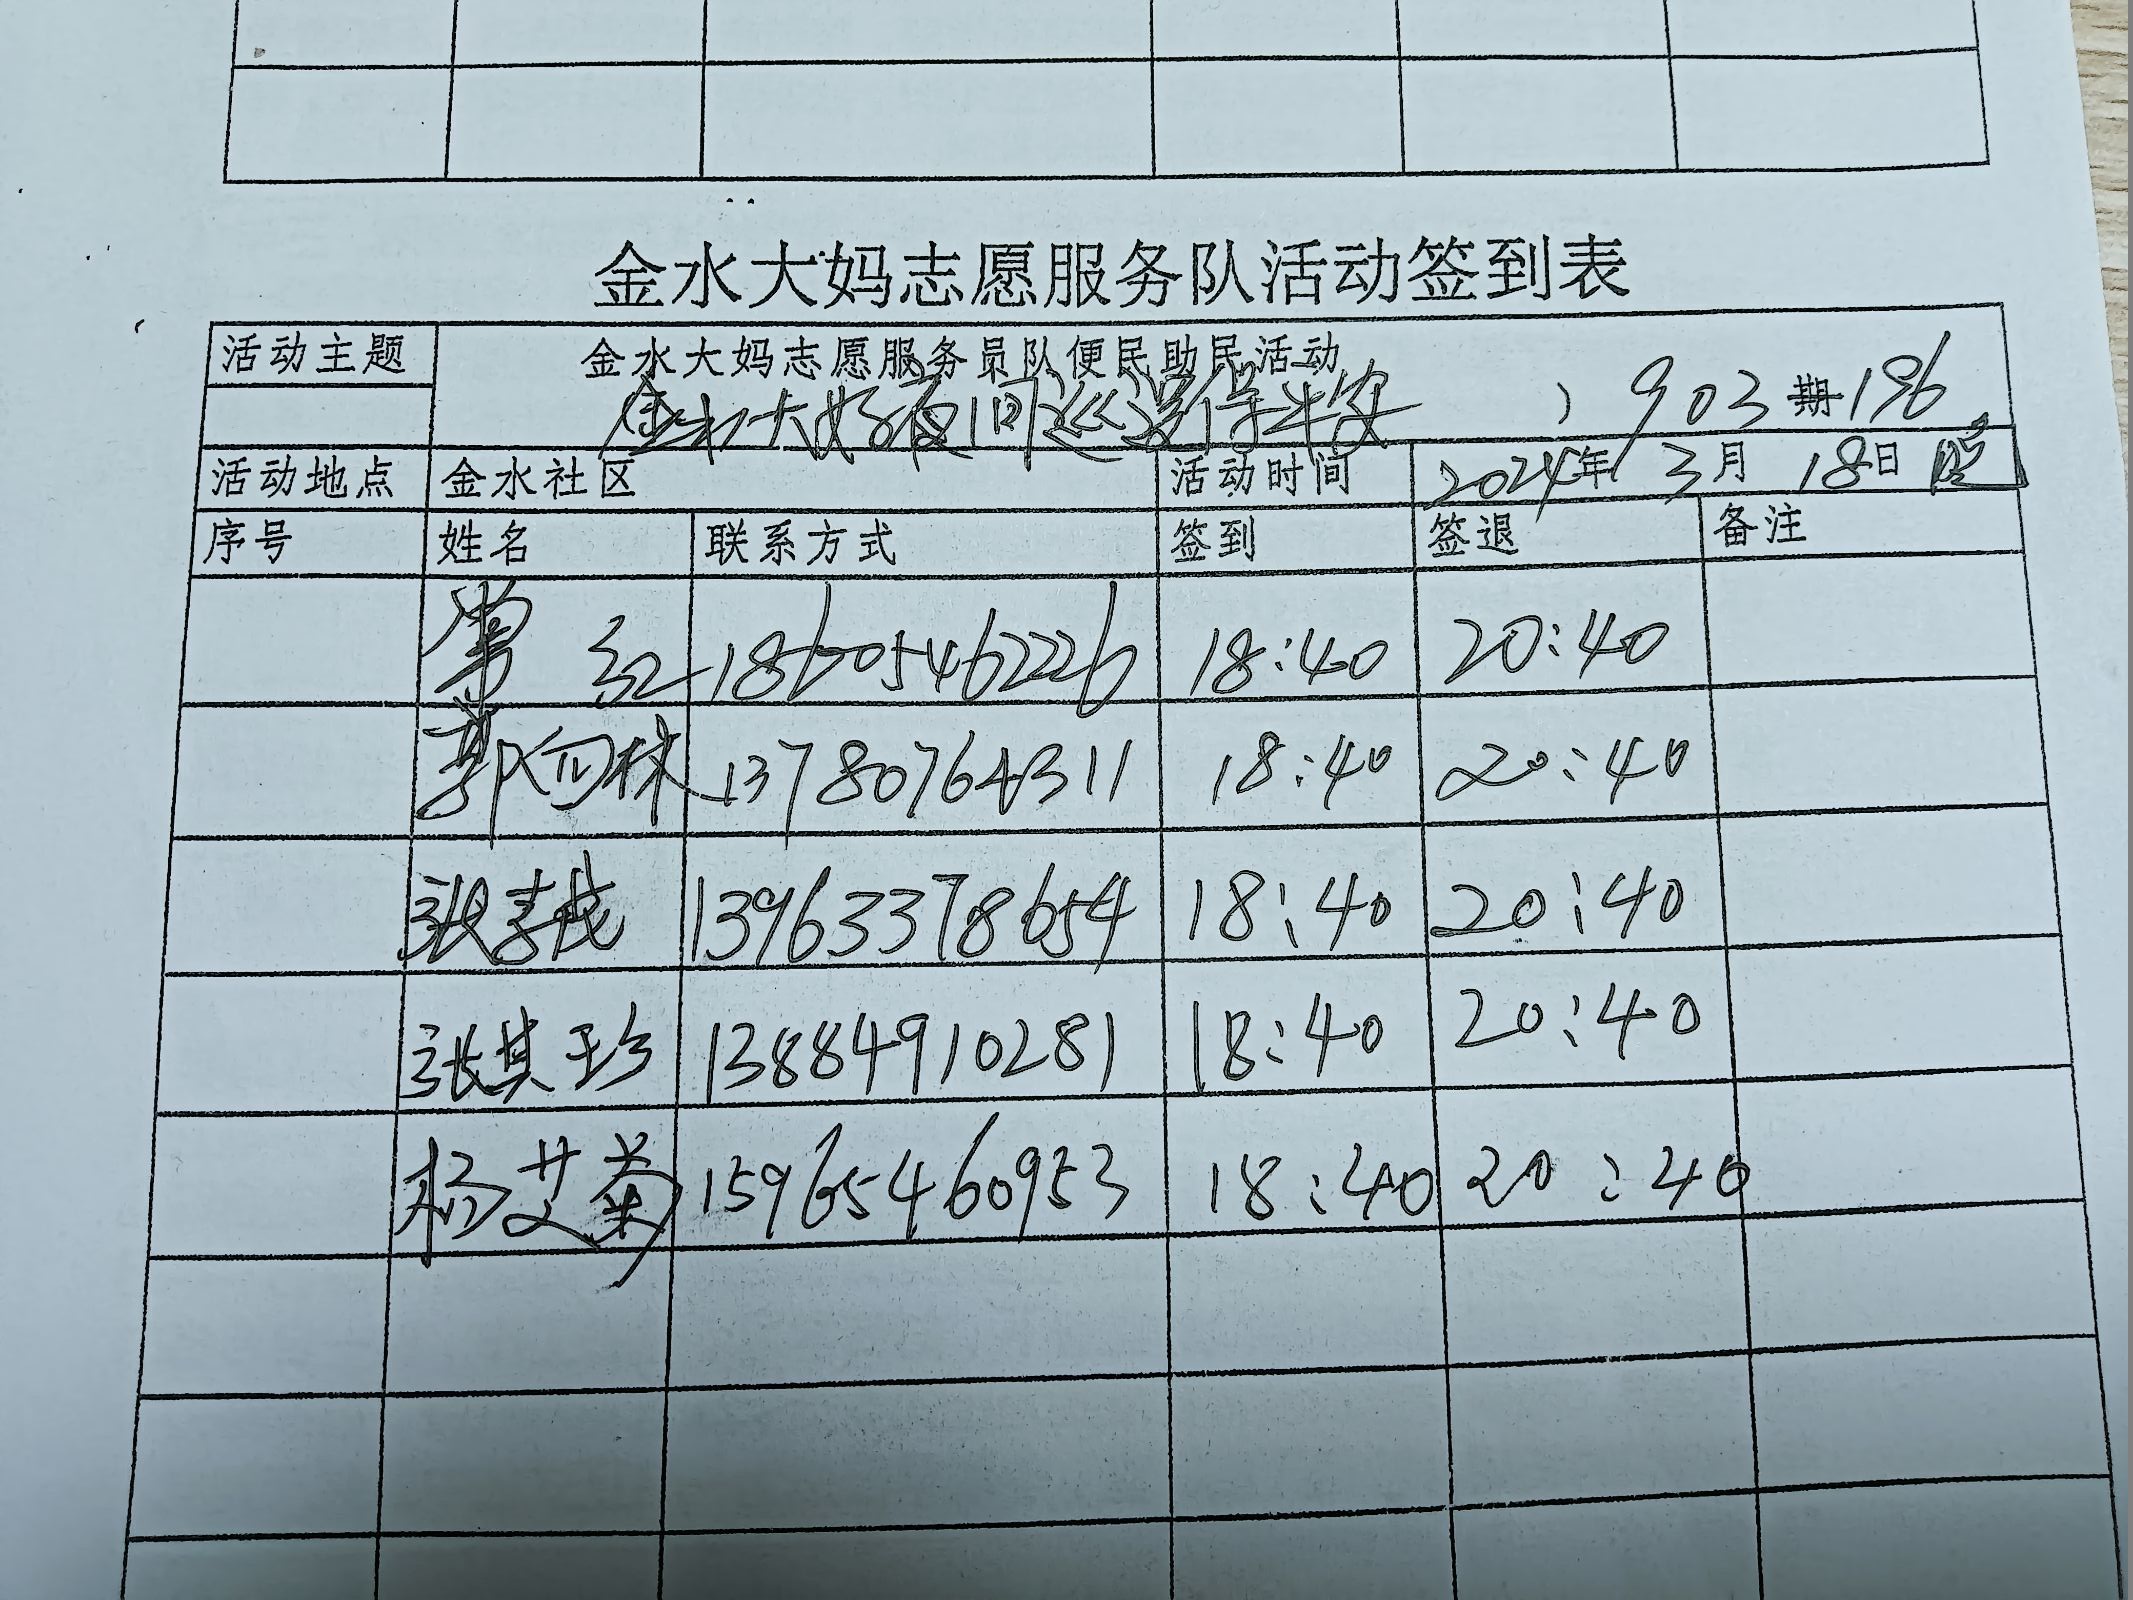 金水大妈志愿服务队活动签到表
活动主题 金水大妈志愿服务员队便民助民活动
金水大妈夜间巡逻保平安 ） 903期196
活动地点 金水社区 活动时间 2024年3月18日 晚
序号 姓名 联系方式 签到 签退 备注
红 18605462226 18:40 20:40
郭向林 13780764311 18:40 20:40
张 13963378654 18:40 20:40
张其珍 13884910281 18:40 20:40
杨艾菊 15965460953 18:40 20:40